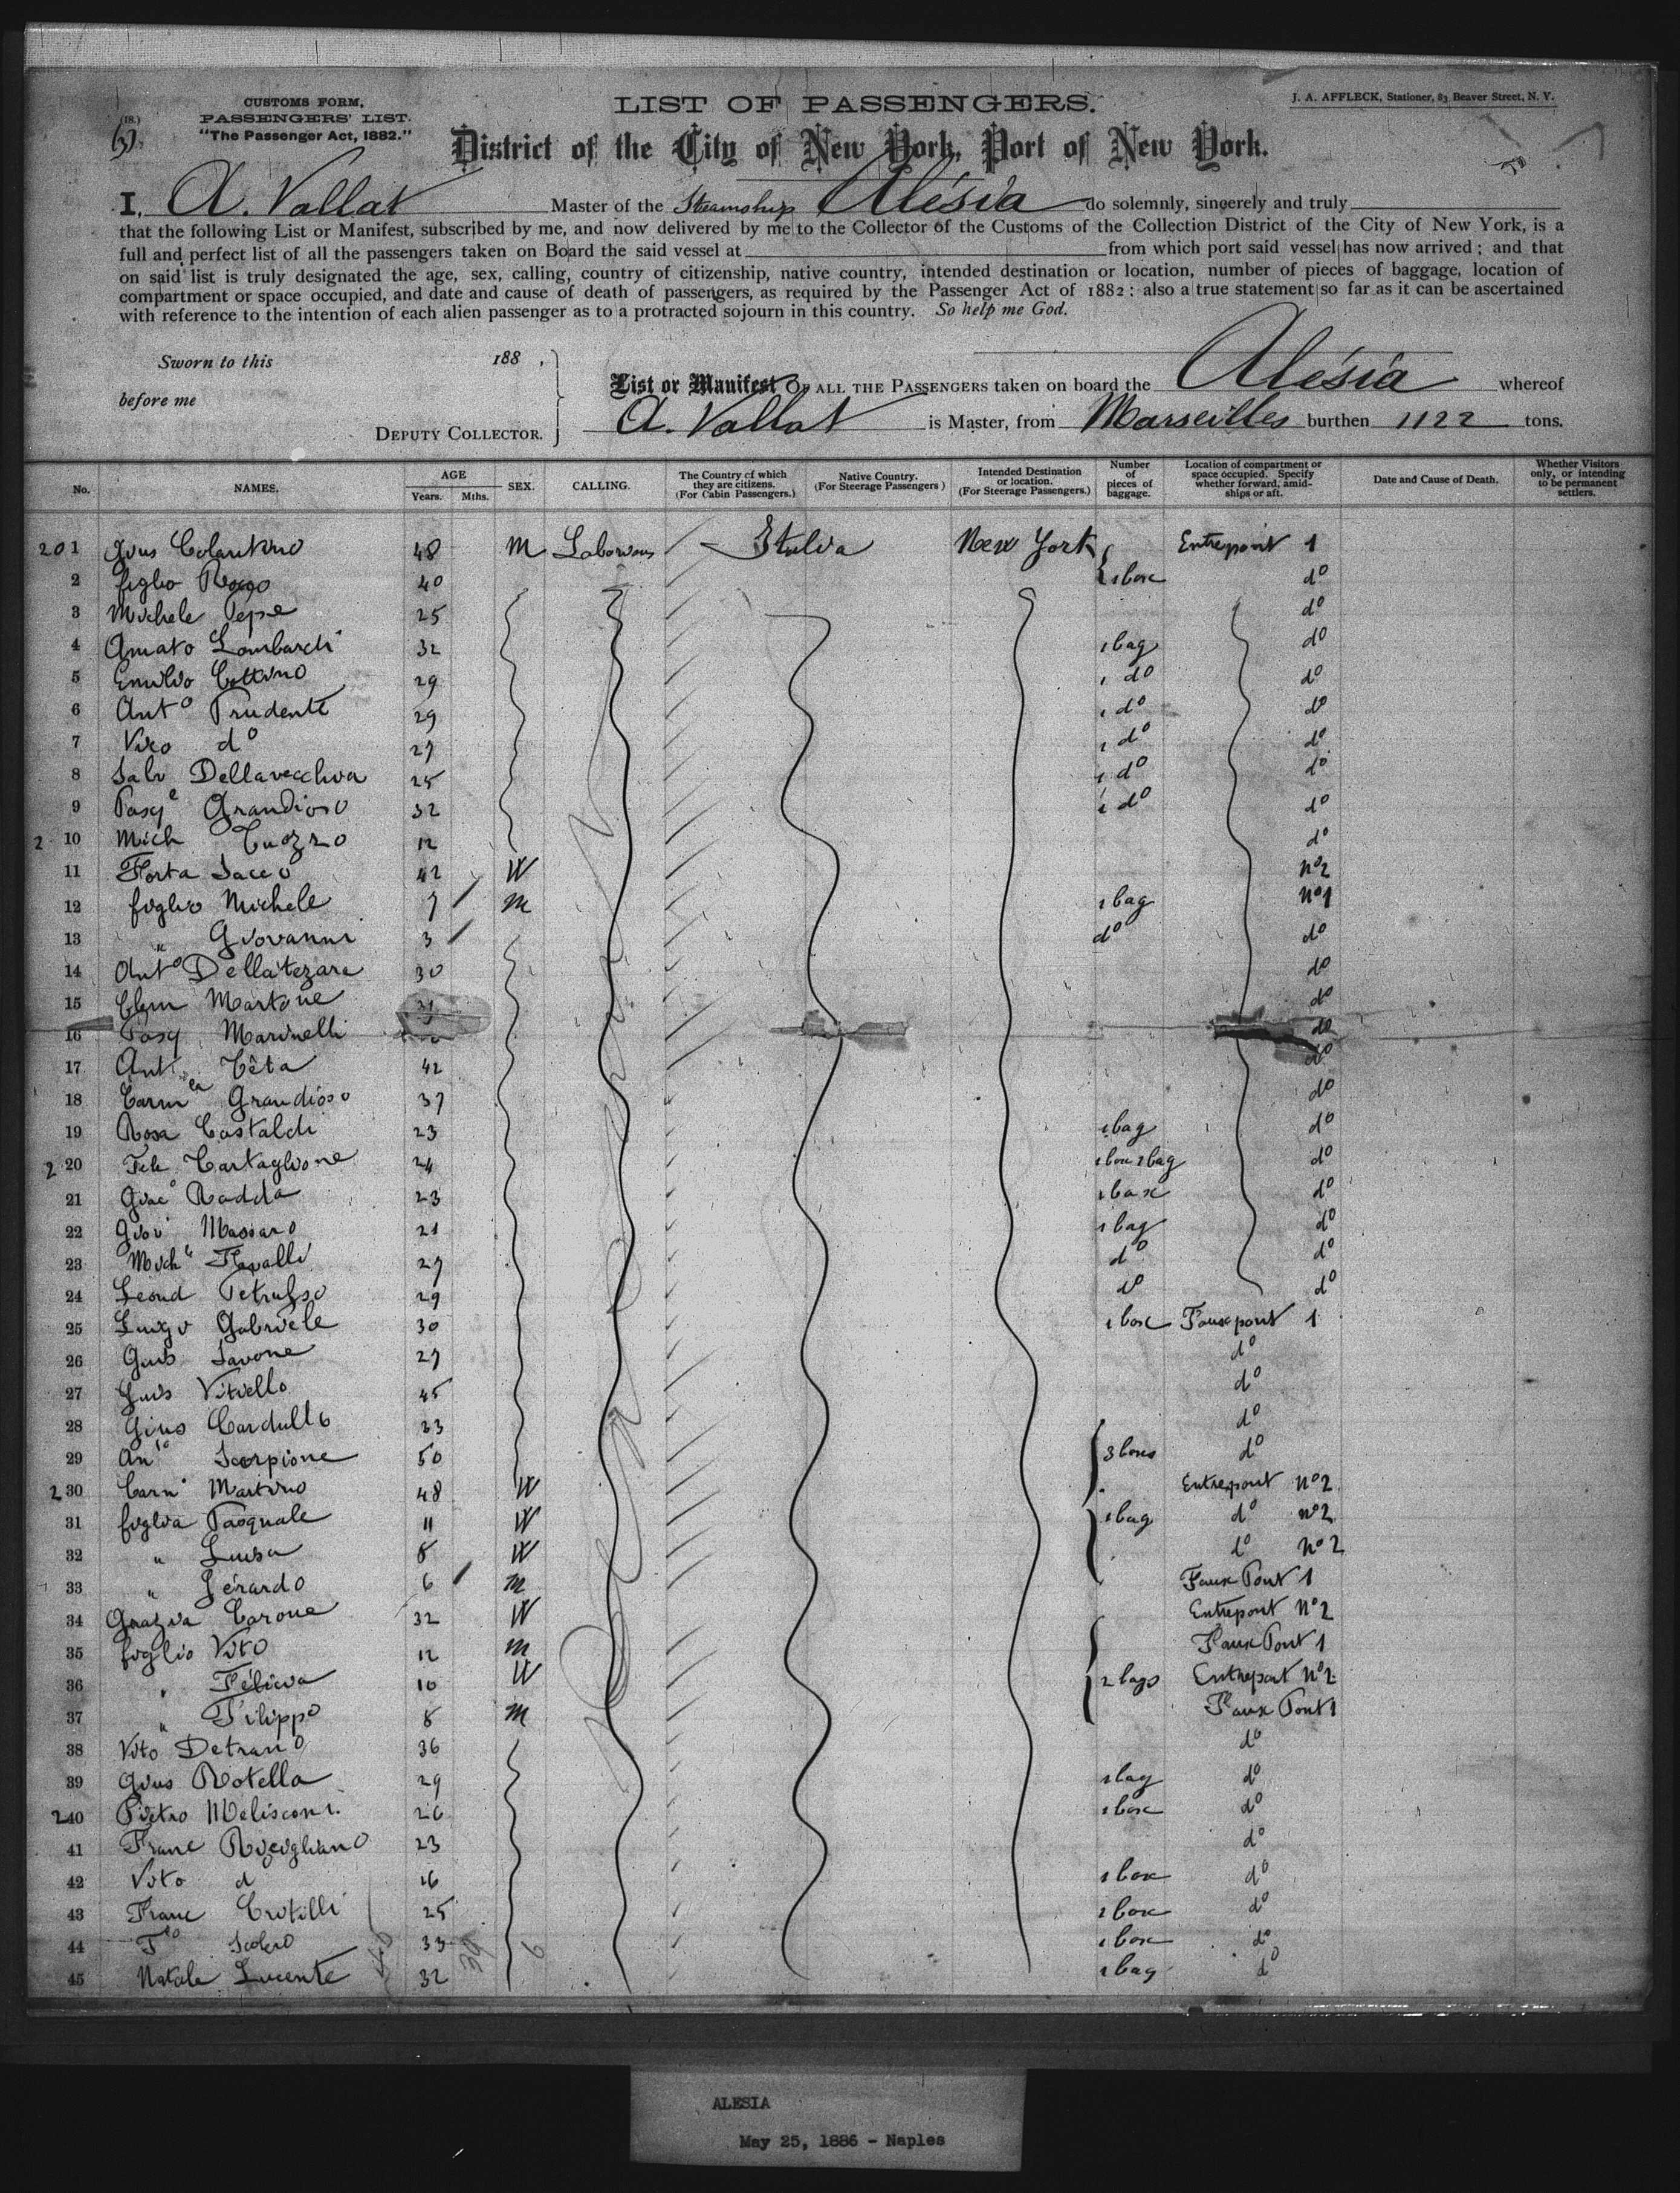 CUSTOMS FORM,
PASSENGERS' LIST.
"The Passenger Act, 1882."
(18.)
LIST OF PASSENGERS.
J. A. AFFLECK, Stationer, 83 Beaver Street, N. Y.
District of the City of New York, Port of New York.
I, A. Vallat Master of the Steamship Alésia do solemnly, sincerely and truly
that the following List or Manifest, subscribed by me, and now delivered by me to the Collector of the Customs of the Collection District of the City of New York, is a
full and perfect list of all the passengers taken on Board the said vessel at from which port said vessel has now arrived; and that
on said list is truly designated the age, sex, calling, country of citizenship, native country, intended destination or location, number of pieces of baggage, location of
compartment or space occupied, and date and cause of death of passengers, as required by the Passenger Act of 1882: also a true statement so far as it can be ascertained
with reference to the intention of each alien passenger as to a protracted sojourn in this country. So help me God.
Sworn to this 188 .
before me
DEPUTY COLLECTOR.
List or Manifest OF ALL THE PASSENGERS taken on board the Alésia whereof
A. Vallat is Master, from Marseilles burthen 1122 tons.
No. NAMES. AGE Years. Mths. SEX. CALLING. The Country of which they are citizens. (For Cabin Passengers.) Native Country. (For Steerage Passengers) Intended Destination or location. (For Steerage Passengers.) Number of pieces of baggage. Location of compartment or space occupied. Specify whether forward, amidships or aft. Date and Cause of Death. Whether Visitors only, or intending to be permanent settlers.
201 Gius 48 M Italia New York Entrepont 1
2 figlio Rocco 40 1 box do
3 Michele Pepe 25 do
4 Amato Lombardi 32 1 bag do
5 Emilio 29 1 do do
6 Anto Prudente 29 1 do do
7 Vito do 27 1 do do
8 Salv Dellavecchia 25 1 do do
9 Pasqe Grandioso 32 1 do do
2 10 Mich Cuozzo 12 do
11 Sacco 42 W No 2
12 figlio Michele 7 M 1 bag No 1
13 " Giovanni 3 do do
14 Anto 30 do
15 Clem Martone do
16 Pasq Marinelli do
17 Ant Têta 42 do
18 Carm Grandioso 37 do
19 Rosa Castaldi 23 1 bag do
2 20 Fele Cartaglione 24 1 box 1 bag do
21 Giaco Radda 23 1 box do
22 Giov Massaro 21 1 bag do
23 Mich 27 do do
24 Leond 29 do do
25 Luigi Gabriele 30 1 box Faux pont 1
26 Gius Savone 27 do
27 Luis Vitiello 45 do
28 Gius Cardullo 33 do
29 Scorpione 50 3 boxes do
2 30 Carm Martino 48 W Entrepont No 2
31 figlia Pasquale 11 W 1 bag do No 2
32 " Luisa 8 W do No 2
33 " Gérardo 6 M Faux Pont 1
34 Grazia Carone 32 W Entrepont No 2
35 figlio Vito 12 M Faux Pont 1
36 " Félicia 10 W 2 bags Entrepont No 2
37 " Filippo 8 M Faux Pont 1
38 Vito Detrano 36 do
39 Gius Rotella 29 1 bag do
240 Pietro 26 1 box do
41 Franc 23 do
42 Vito d 16 1 box do
43 Franc Crotilli 25 1 box do
44 33 1 box do
45 Natale Lucente 32 1 bag do
ALESIA
May 25, 1886 - Naples